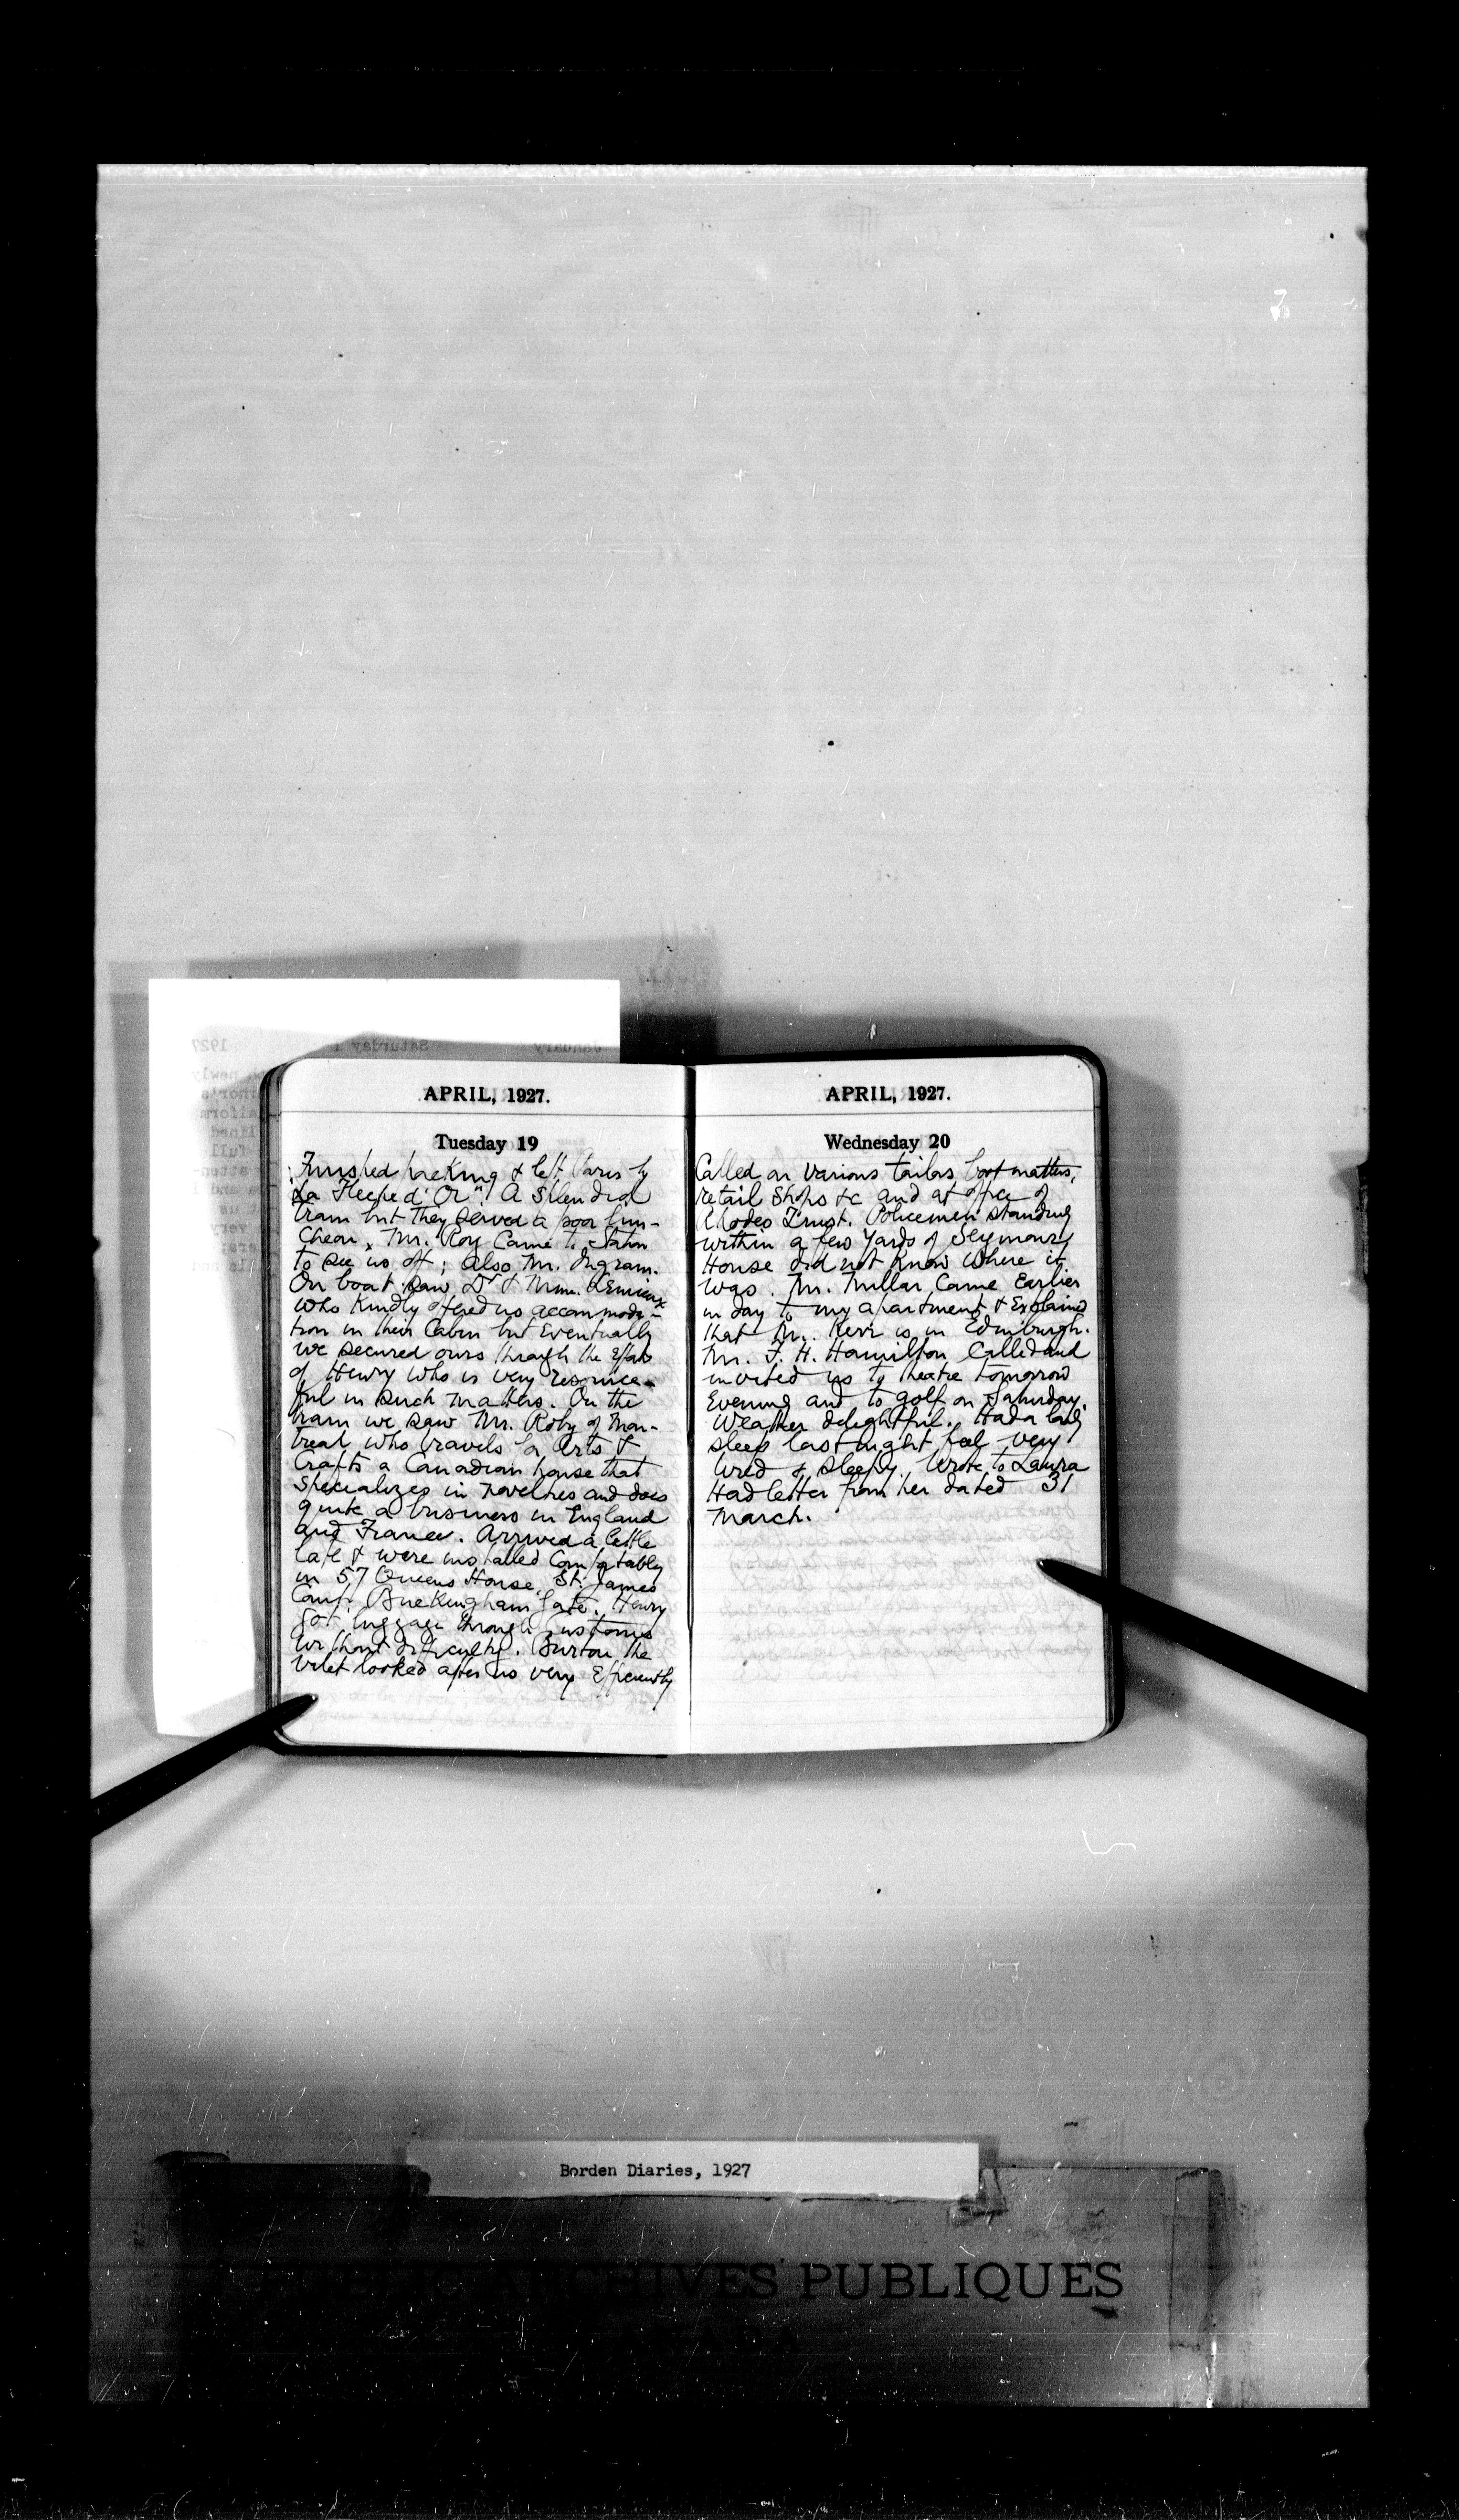 APRIL, 1927.
Tuesday 19
Finished packing & left Paris by
"La Fleche d'Or". A splendid
train but they served a poor lun-
cheon. Mr. Roy came to station
to see us off; also Mr. Ingram.
On boat saw Dr & Mme. Lemieux
who kindly offered us accommoda-
tion in their cabin but eventually
we secured ours through the efforts
of Henry who is very resource-
ful in such matters. On the
train we saw Mr. Roby of Mon-
treal who travels for Arts &
Crafts a Canadian house that
specializes in novelties and does
quite a business in England
and France. Arrived a little
late & were installed comfortably
in 57 Queens House, St. James
Court Buckingham Gate. Henry
got luggage through customs
without difficulty. Burton the
valet looked after us very efficiently
APRIL, 1927.
Wednesday 20
Called on various tailors boot matters,
retail shops &c and at office of
Rhodes Trust. Policemen standing
within a few yards of Seymour
House did not know where it
was. Mr. Millar came earlier
in day to my apartment & explained
that Mr. Kerr is in Edinburgh.
Mr. F. H. Hamilton called and
invited us to theatre tomorrow
evening and to golf on Saturday.
Weather delightful. Had a bad
sleep last night feel very
tired & sleepy. Wrote to Laura
Had letter from her dated 31
March.
Borden Diaries, 1927
PUBLIC ARCHIVES PUBLIQUES